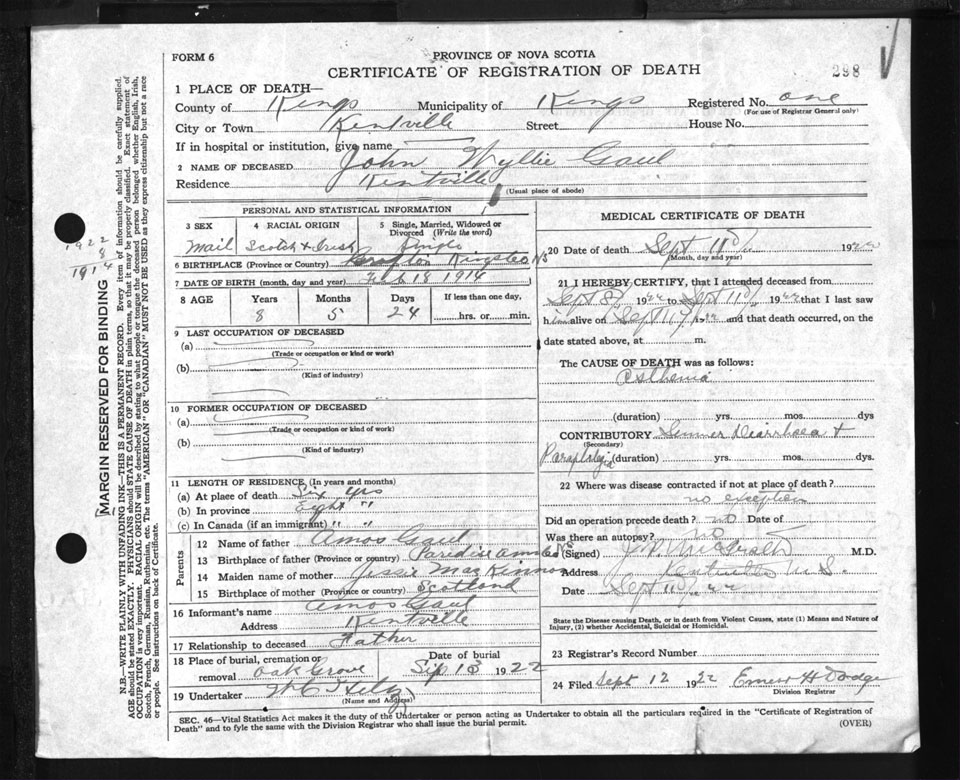 FORM 6
PROVINCE OF NOVA SCOTIA
CERTIFICATE OF REGISTRATION OF DEATH
298
1 PLACE OF DEATH—
County of Kings Municipality of Kings Registered No. one
(For use of Registrar General only)
City or Town Kentville Street House No.
If in hospital or institution, give name
2 NAME OF DECEASED John Wyllie Gaul
Residence Kentville
(Usual place of abode)
PERSONAL AND STATISTICAL INFORMATION
3 SEX 4 RACIAL ORIGIN 5 Single, Married, Widowed or Divorced (Write the word)
Mail Scotch & Irish Single
6 BIRTHPLACE (Province or Country) Kingston NS
7 DATE OF BIRTH (month, day and year) 18 1914
8 AGE Years Months Days If less than one day,
8 5 24 hrs. or min.
9 LAST OCCUPATION OF DECEASED
(a)
(Trade or occupation or kind or work)
(b)
(Kind of industry)
10 FORMER OCCUPATION OF DECEASED
(a)
(Trade or occupation or kind of work)
(b)
(Kind of industry)
11 LENGTH OF RESIDENCE (In years and months)
(a) At place of death Six yrs
(b) In province Eight "
(c) In Canada (if an immigrant) " "
Parents
12 Name of father Amos Gaul
13 Birthplace of father (Province or country) Paradise NS
14 Maiden name of mother Jessie MacKinnon
15 Birthplace of mother (Province or country) Scotland
16 Informant's name Amos Gaul
Address Kentville
17 Relationship to deceased Father
18 Place of burial, cremation or removal Oak Grove Date of burial Sep 13 1922
19 Undertaker
(Name and Address)
MEDICAL CERTIFICATE OF DEATH
20 Date of death Sept 11th 1922
(Month, day and year)
21 I HEREBY CERTIFY, that I attended deceased from
Sept 8th 1922 to Sept 11th 1922 that I last saw
him alive on Sept 11th 1922 and that death occurred, on the
date stated above, at m.
The CAUSE OF DEATH was as follows:
Asthenia
(duration) yrs. mos. dys
CONTRIBUTORY Summer Diarrhoea +
(Secondary)
Paraplegia (duration) yrs. mos. dys.
22 Where was disease contracted if not at place of death?
no exception
Did an operation precede death? no Date of
Was there an autopsy? no
(Signed) M.D.
Address Kentville N.S.
Date Sept 11th 22
State the Disease causing Death, or in death from Violent Causes, state (1) Means and Nature of
Injury, (2) whether Accidental, Suicidal or Homicidal.
23 Registrar's Record Number
24 Filed Sept 12 1922 H Dodge
Division Registrar
SEC. 46—Vital Statistics Act makes it the duty of the Undertaker or person acting as Undertaker to obtain all the particulars required in the "Certificate of Registration of
Death" and to fyle the same with the Division Registrar who shall issue the burial permit.
(OVER)
1922
8
1914
MARGIN RESERVED FOR BINDING
N.B.—WRITE PLAINLY WITH UNFADING INK—THIS IS A PERMANENT RECORD. Every item of information should be carefully supplied.
AGE should be stated EXACTLY. PHYSICIANS should STATE CAUSE OF DEATH in plain terms, so that it may be properly classified. Exact statement of
OCCUPATION is very important. RACIAL ORIGIN will be described by stating to what people or tongue the deceased person belonged whether English, Irish,
Scotch, French, German, Russian, Ruthenian, etc. The terms "AMERICAN" OR "CANADIAN" MUST NOT BE USED as they express citizenship but not a race
or people. See instructions on back of Certificate.